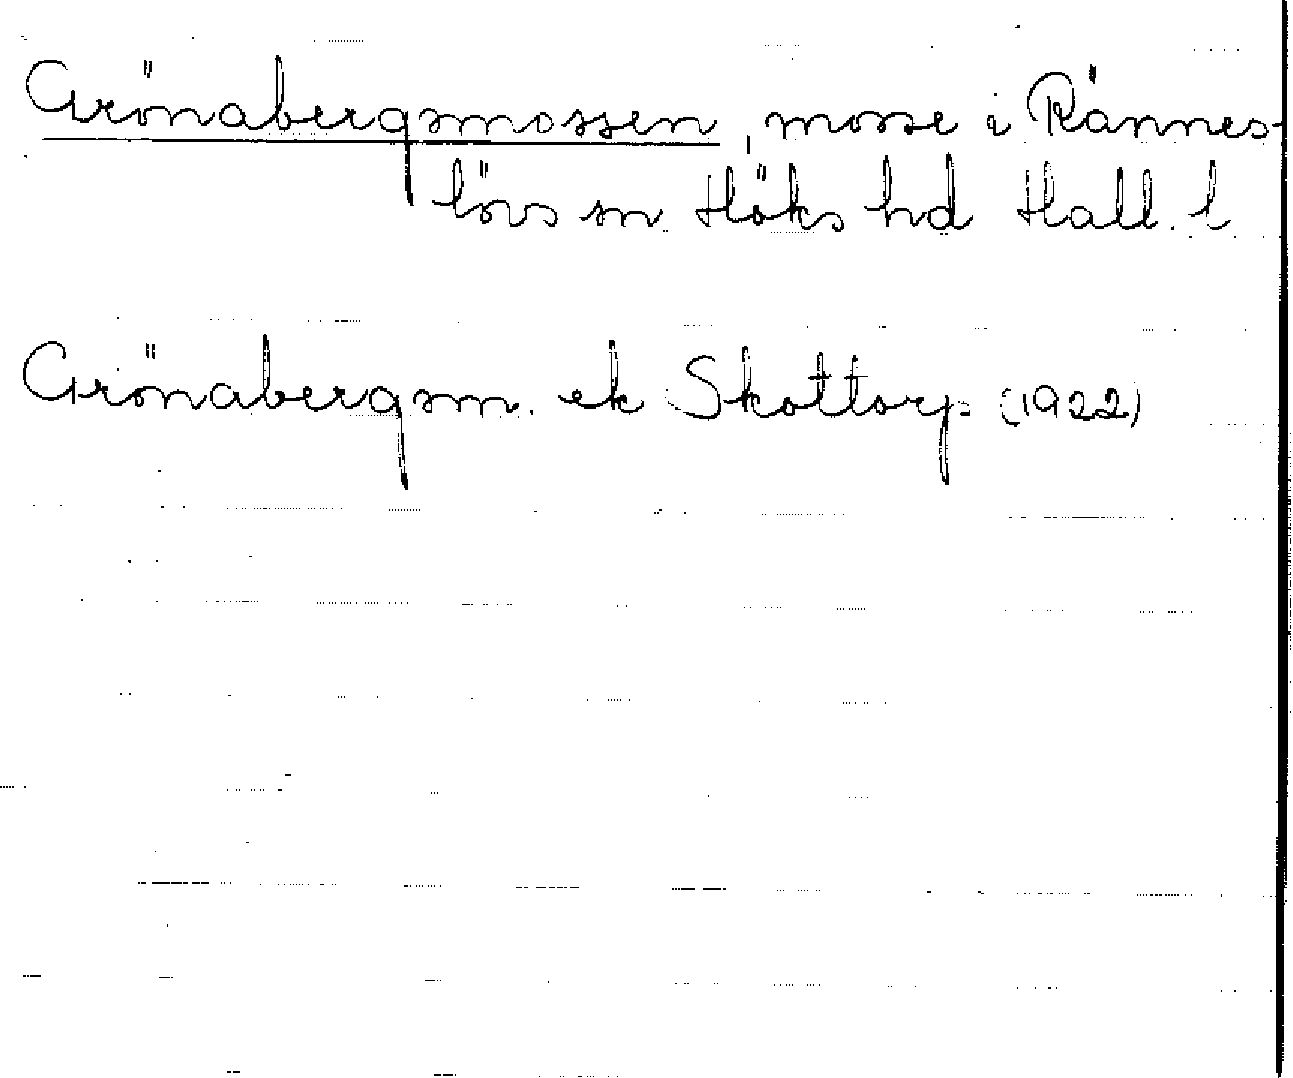 Grönabergsmossen, mosse i Rännes-
lövs sn Höks hd Hall. l
Grönabergsm. ek Skottorp (1922)